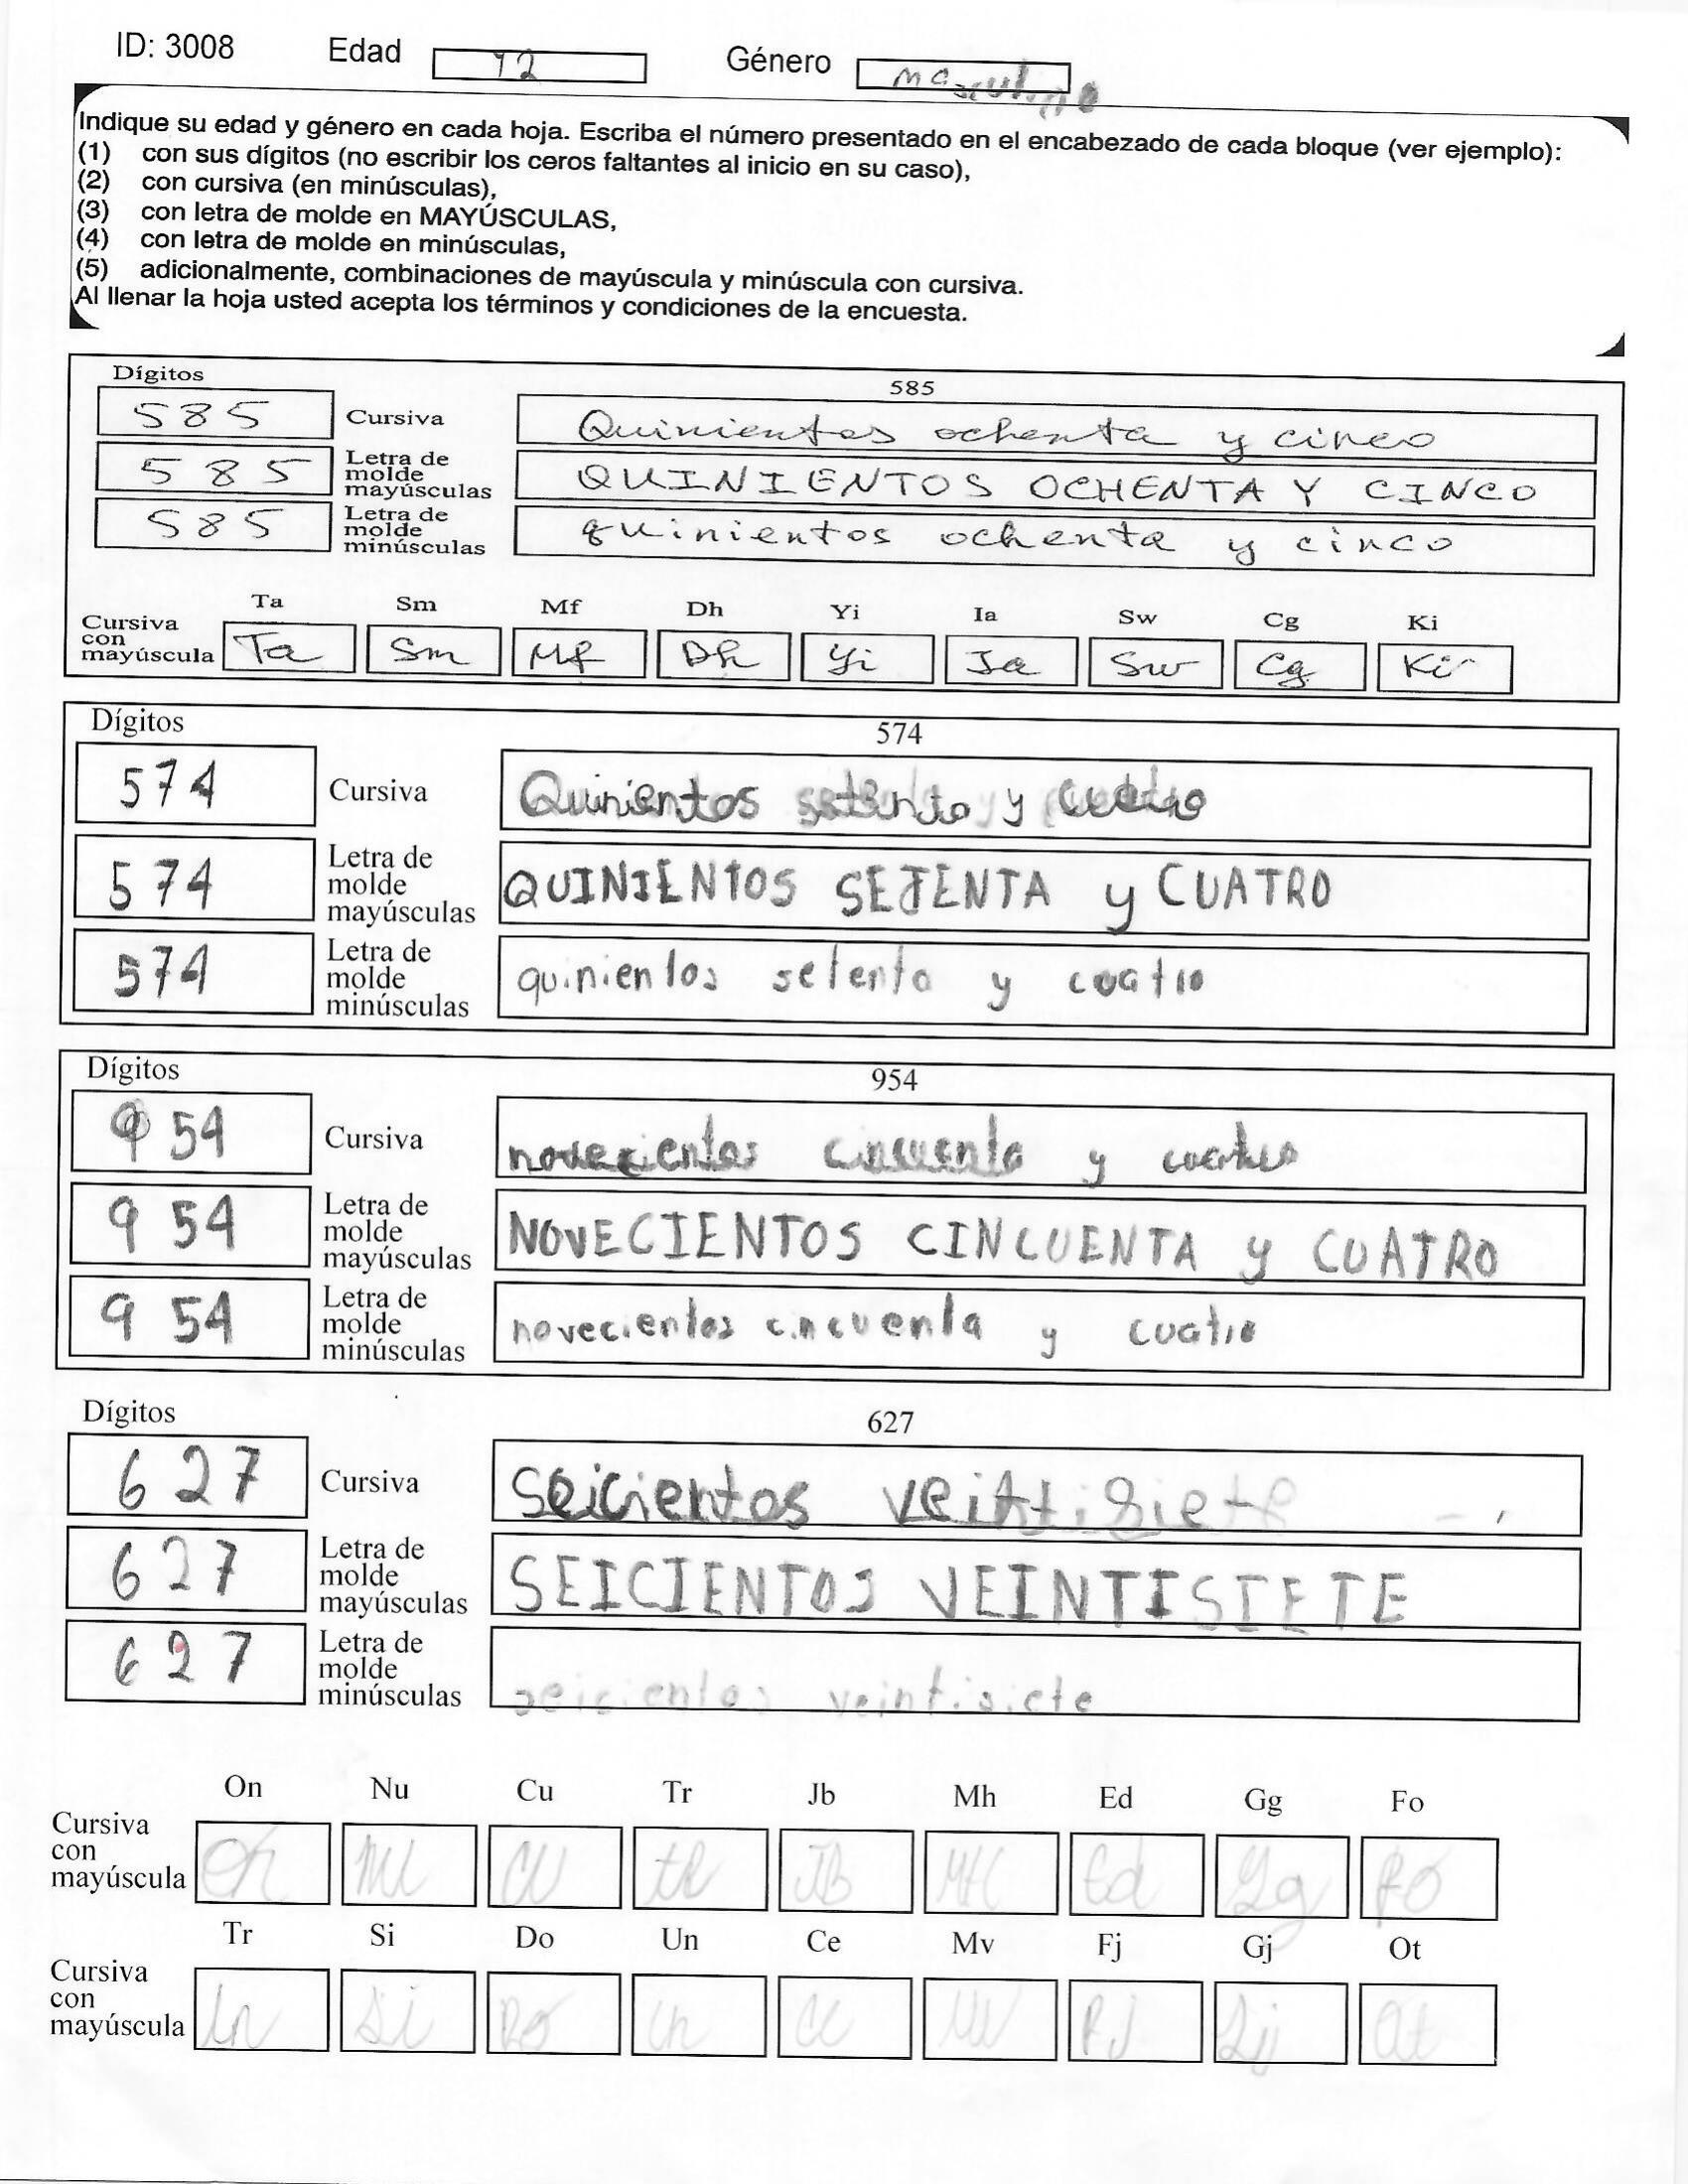 ID: 3008 Edad 12 Género masculino
Indique su edad y género en cada hoja. Escriba el número presentado en el encabezado de cada bloque (ver ejemplo):
(1) con sus dígitos (no escribir los ceros faltantes al inicio en su caso),
(2) con cursiva (en minúsculas),
(3) con letra de molde en MAYÚSCULAS,
(4) con letra de molde en minúsculas,
(5) adicionalmente, combinaciones de mayúscula y minúscula con cursiva.
Al llenar la hoja usted acepta los términos y condiciones de la encuesta.
Dígitos 585
585 Cursiva Quinientos ochenta y cinco
585 Letra de molde mayúsculas QUINIENTOS OCHENTA Y CINCO
585 Letra de molde minúsculas quinientos ochenta y cinco
Ta Sm Mf Dh Yi Ia Sw Cg Ki
Cursiva con mayúscula Ta Sm Mf Dh Yi Ia Sw Cg Ki
Dígitos 574
574 Cursiva Quinientos setenta y cuatro
574 Letra de molde mayúsculas QUINIENTOS SETENTA y CUATRO
574 Letra de molde minúsculas quinientos setenta y cuatro
Dígitos 954
954 Cursiva novecientos cincuenta y cuatro
954 Letra de molde mayúsculas NOVECIENTOS CINCUENTA y CUATRO
954 Letra de molde minúsculas novecientos cincuenta y cuatro
Dígitos 627
627 Cursiva Seicientos veintisiete
627 Letra de molde mayúsculas SEICIENTOS VEINTISIETE
627 Letra de molde minúsculas seicientos veintisiete
On Nu Cu Tr Jb Mh Ed Gg Fo
Cursiva con mayúscula On Nu Cu tr JB MH Ed Gg Fo
Tr Si Do Un Ce Mv Fj Gj Ot
Cursiva con mayúscula Si Do Un Ce Mv Fj Gj Ot